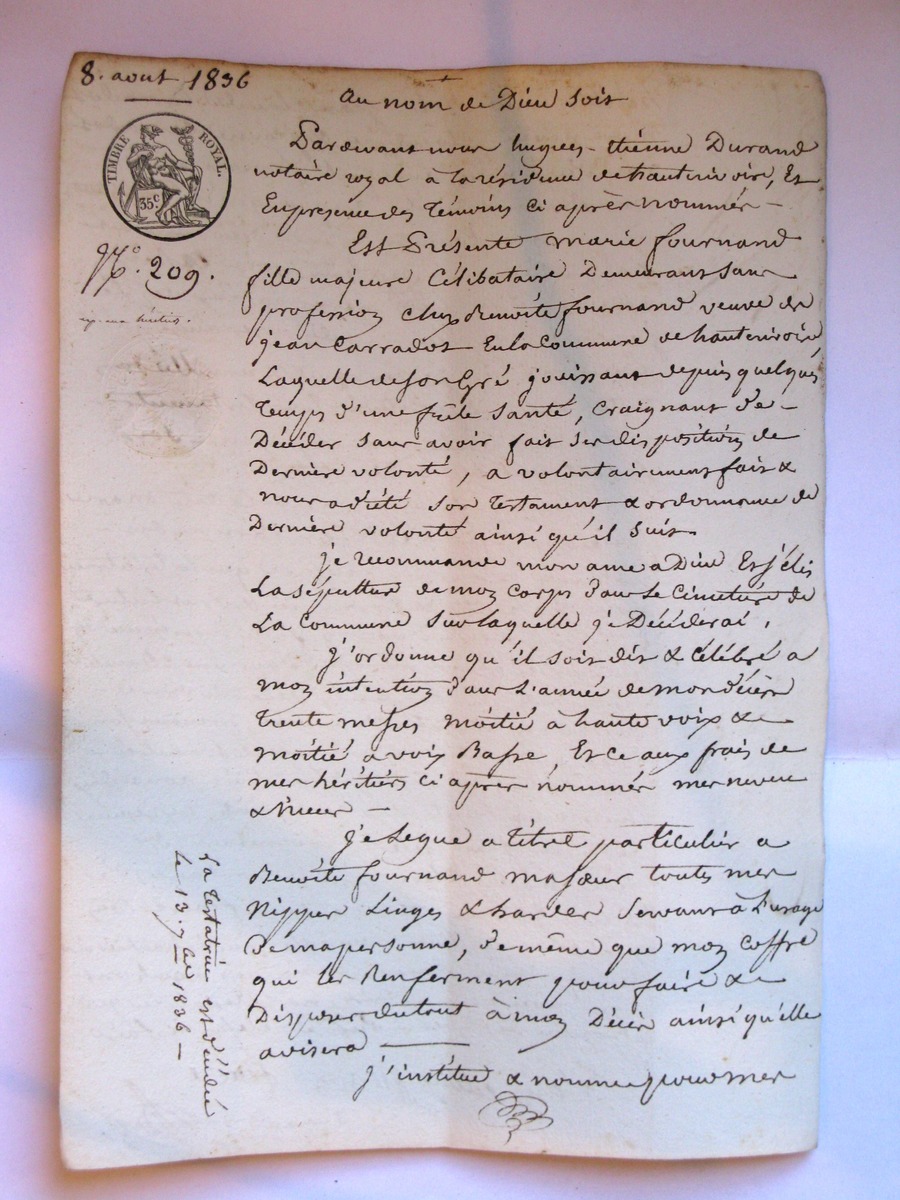 8. aout 1836
Au nom de Dieu soit
TIMBRE ROYAL.
35 c.
N.º 209.
Pardevant nous hugues-étienne Durand
notaire royal à la résidence de hauterivoire, Et
En présence des témoins ci après nommés —
Est Présente marie fournand
fille majeure Célibataire Demeurant sans
profession chez Benoite fournand veuve de
jean Carradot En la Commune de hauterivoire
Laquelle de son Gré jouissant depuis quelques
temps d'une foible santé, craignant de —
Décéder sans avoir fait ses dispositions de
Dernière volonté, a volontairement fait &
nous a dicté son testament & ordonnance de
Dernière volonté ainsi qu'il suit.
je recommande mon ame a Dieu Et j'élis
La sépulture de mon corps dans le cimetière de
La Commune sur laquelle je Décéderai,
j'ordonne qu'il soit dit & célébré a
mon intention dans l'année de mon décès
trente messes moitié à haute voix &
moitié a voix Basse, Et ce aux frais de
mes héritiers ci après nommés mes neveu
& nièces —
je Legue a titre particulier a
Benoite fournand ma sœur toutes mes
Nippes Linges & hardes servant à l'usage
de ma personne, de même que mon coffre
qui les Renferment pour faire &
Disposer du tout à mon Décès ainsi qu'elle
avisera —
j'institue & nomme pour mes
La testatrice est décédée
le 13. 7bre 1836 —